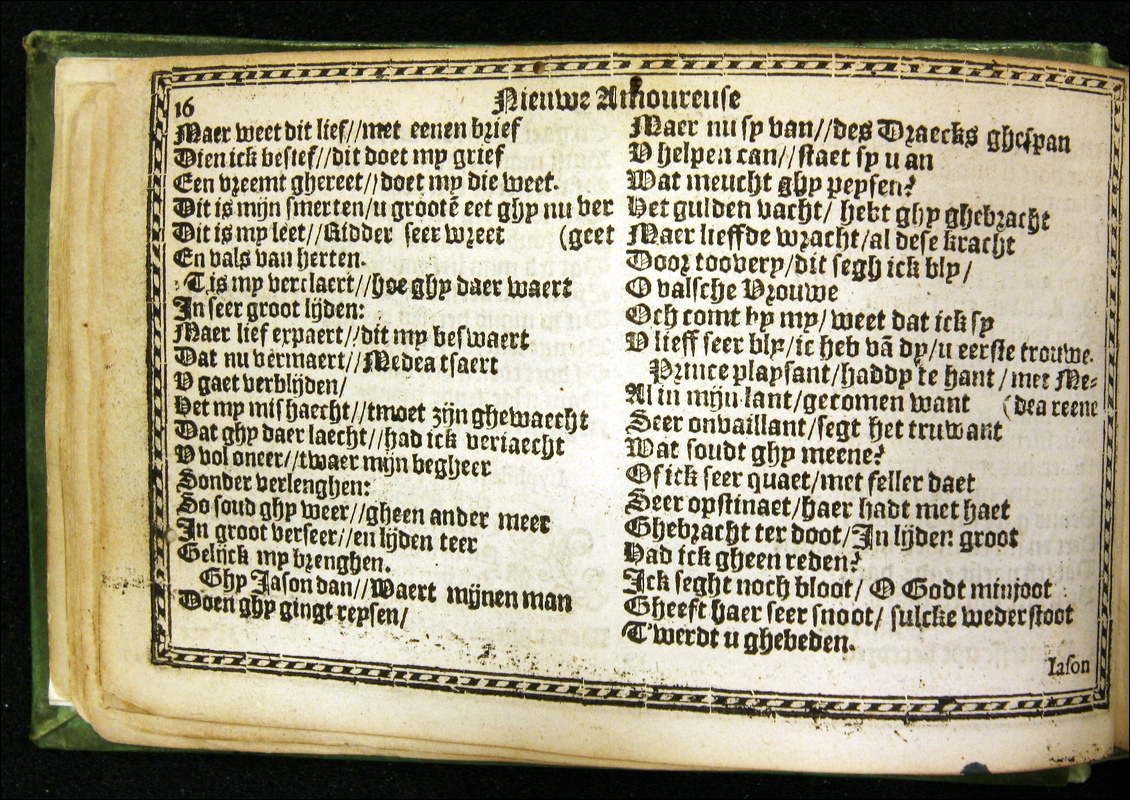 16
Nieuwe Amoureuse
Maer weet dit lief//met eenen brief
Dien ick besief//dit doet my grief
Een vreemt ghereet//doet my die weet.
Dit is mijn smerten/u grootē eet ghy nu ver
Dit is my leet//Ridder seer wreet (geet
En vals van herten.
T.is my verclaert//hoe ghy daer waert
In seer groot lijden:
Maer lief expaert//dit my beswaert
Dat nu vermaert//Medea tsaert
V gaet verblijden/
Het my mishaecht//tmoet zijn ghewaecht
Dat ghy daer laecht//had ick veriaecht
V vol oneer//twaer mijn begheer
Sonder verlenghen:
So soud ghy weer//gheen ander meer
In groot verseer//en lijden teer
Gelijck my brenghen.
Ghy Jason dan//Waert mijnen man
Doen ghy gingt reysen/
Maer nu sy van//des Draecks ghespan
V helpen can//staet sy u an
Wat meucht ghy peysen?
Het gulden vacht/ hebt ghy ghebracht
Maer lieffde wracht/al dese kracht
Door toovery/dit segh ick bly/
O valsche Vrouwe
Och comt by my/weet dat ick sy
V lieff seer bly/ic heb vā dy/u eerste trouwe.
Prince playsant/haddy te hant/met Me-
Al in mijn lant/gecomen want (dea reene
Seer onvaillant/segt het truwant
Wat soudt ghy meene?
Of ick seer quaet/met feller daet
Seer opstinaet/haer hadt met haet
Ghebracht ter doot/In lijden groot
Had ick gheen reden?
Ick seght noch bloot/ O Godt minjoot
Gheeft haer seer snoot/ sulcke wederstoot
T'werdt u ghebeden.
Iason